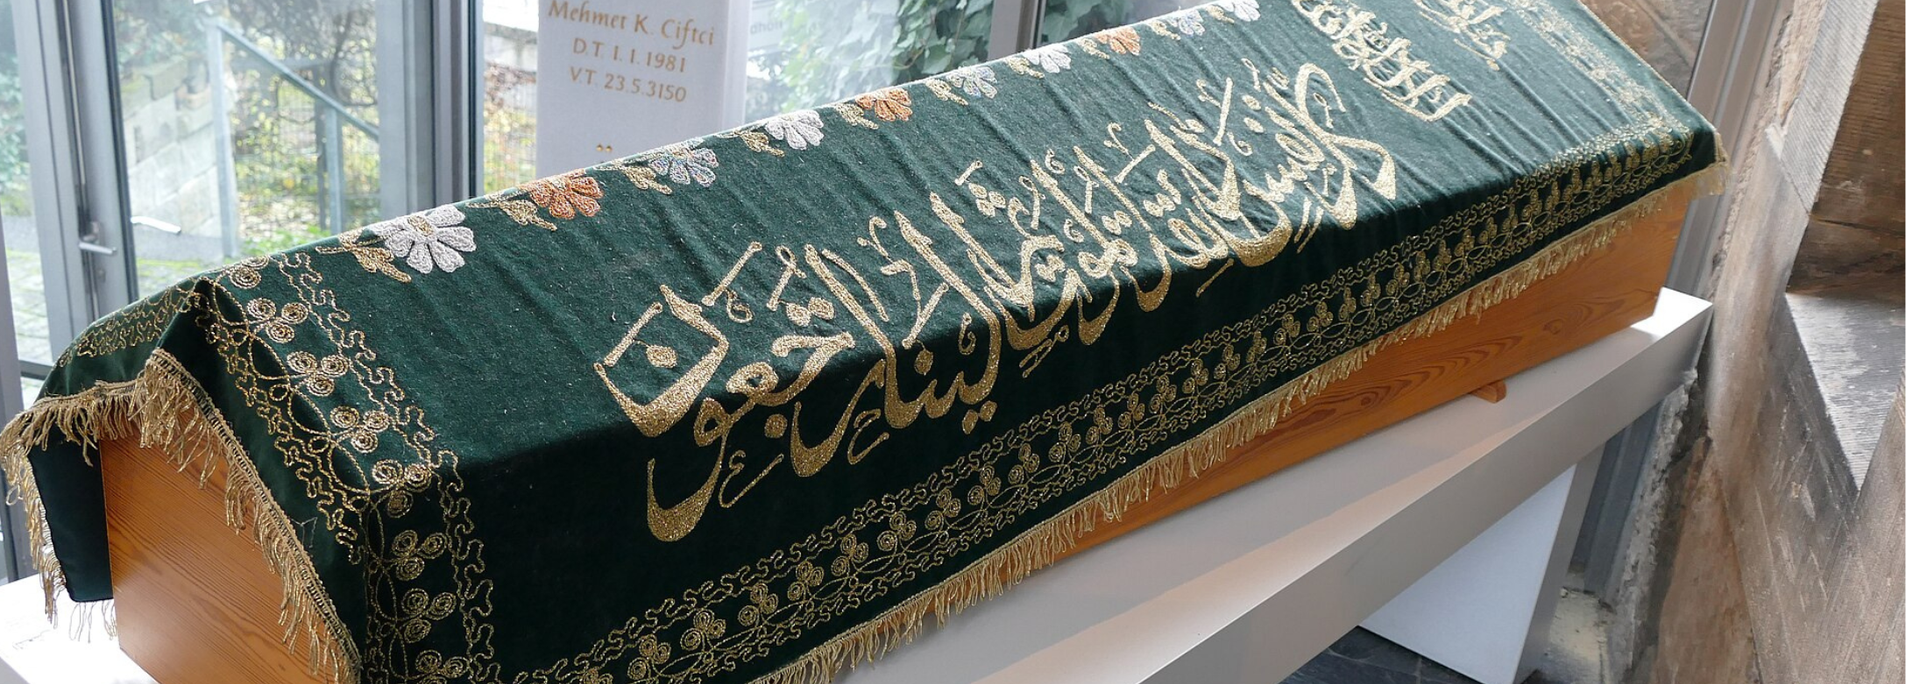 Mehmet K. Çiftci
D.T. 1.1.1981
V.T. 23.5.3150
كل نفس ذائقة الموت ثم إلينا ترجعون